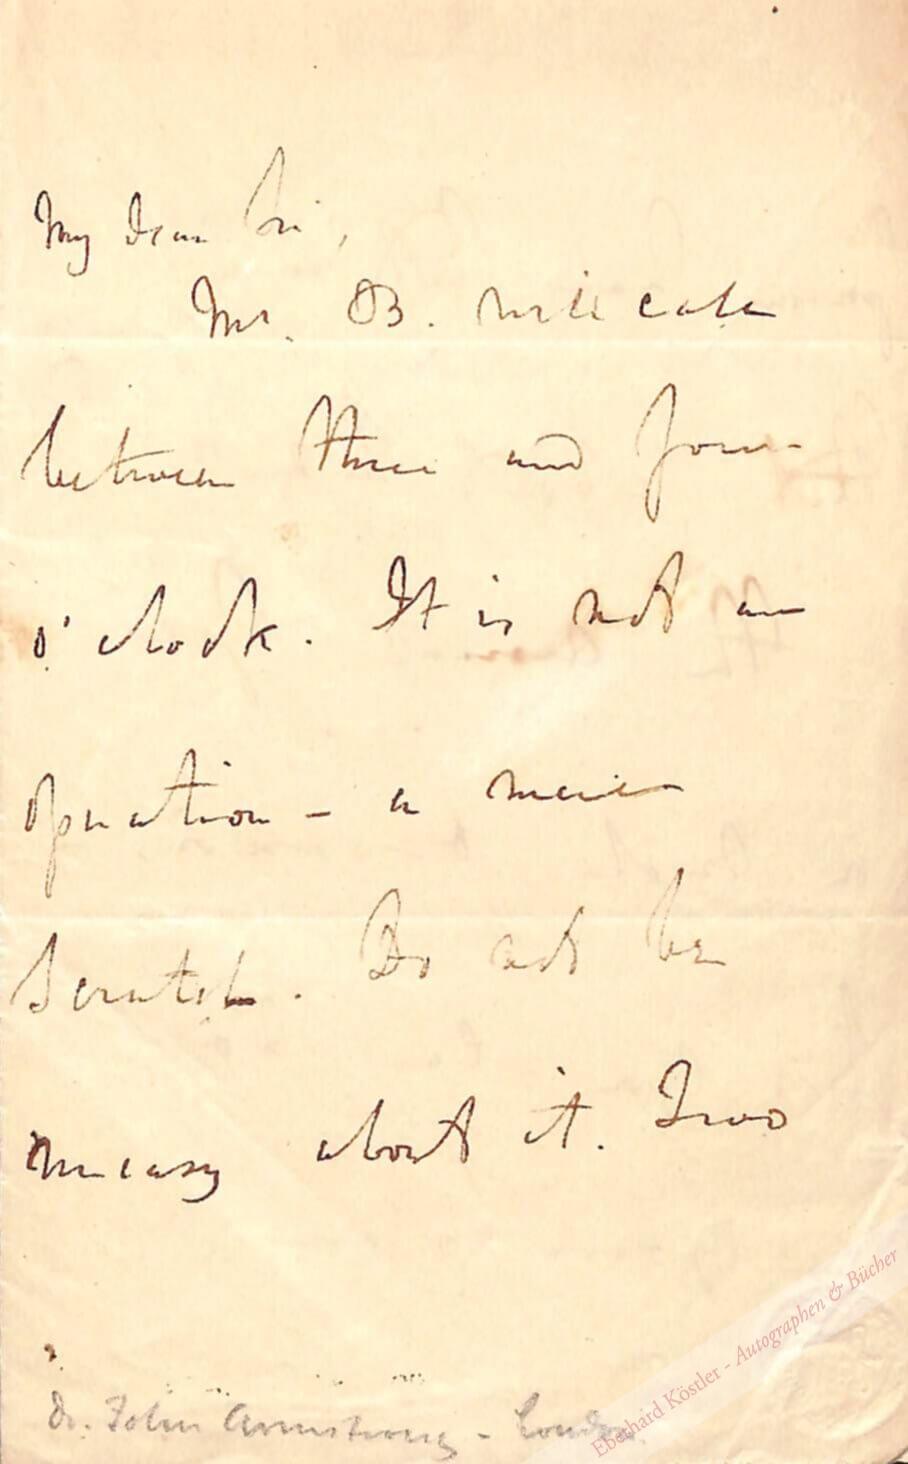 My dear Sir,
Mr. B. will call
between three and four
o'clock. It is not an
operation – a mere
scratch. Do not be
uneasy about it. Two
Dr. John Armstrong – London.
Eberhard Köstler - Autographen & Bücher